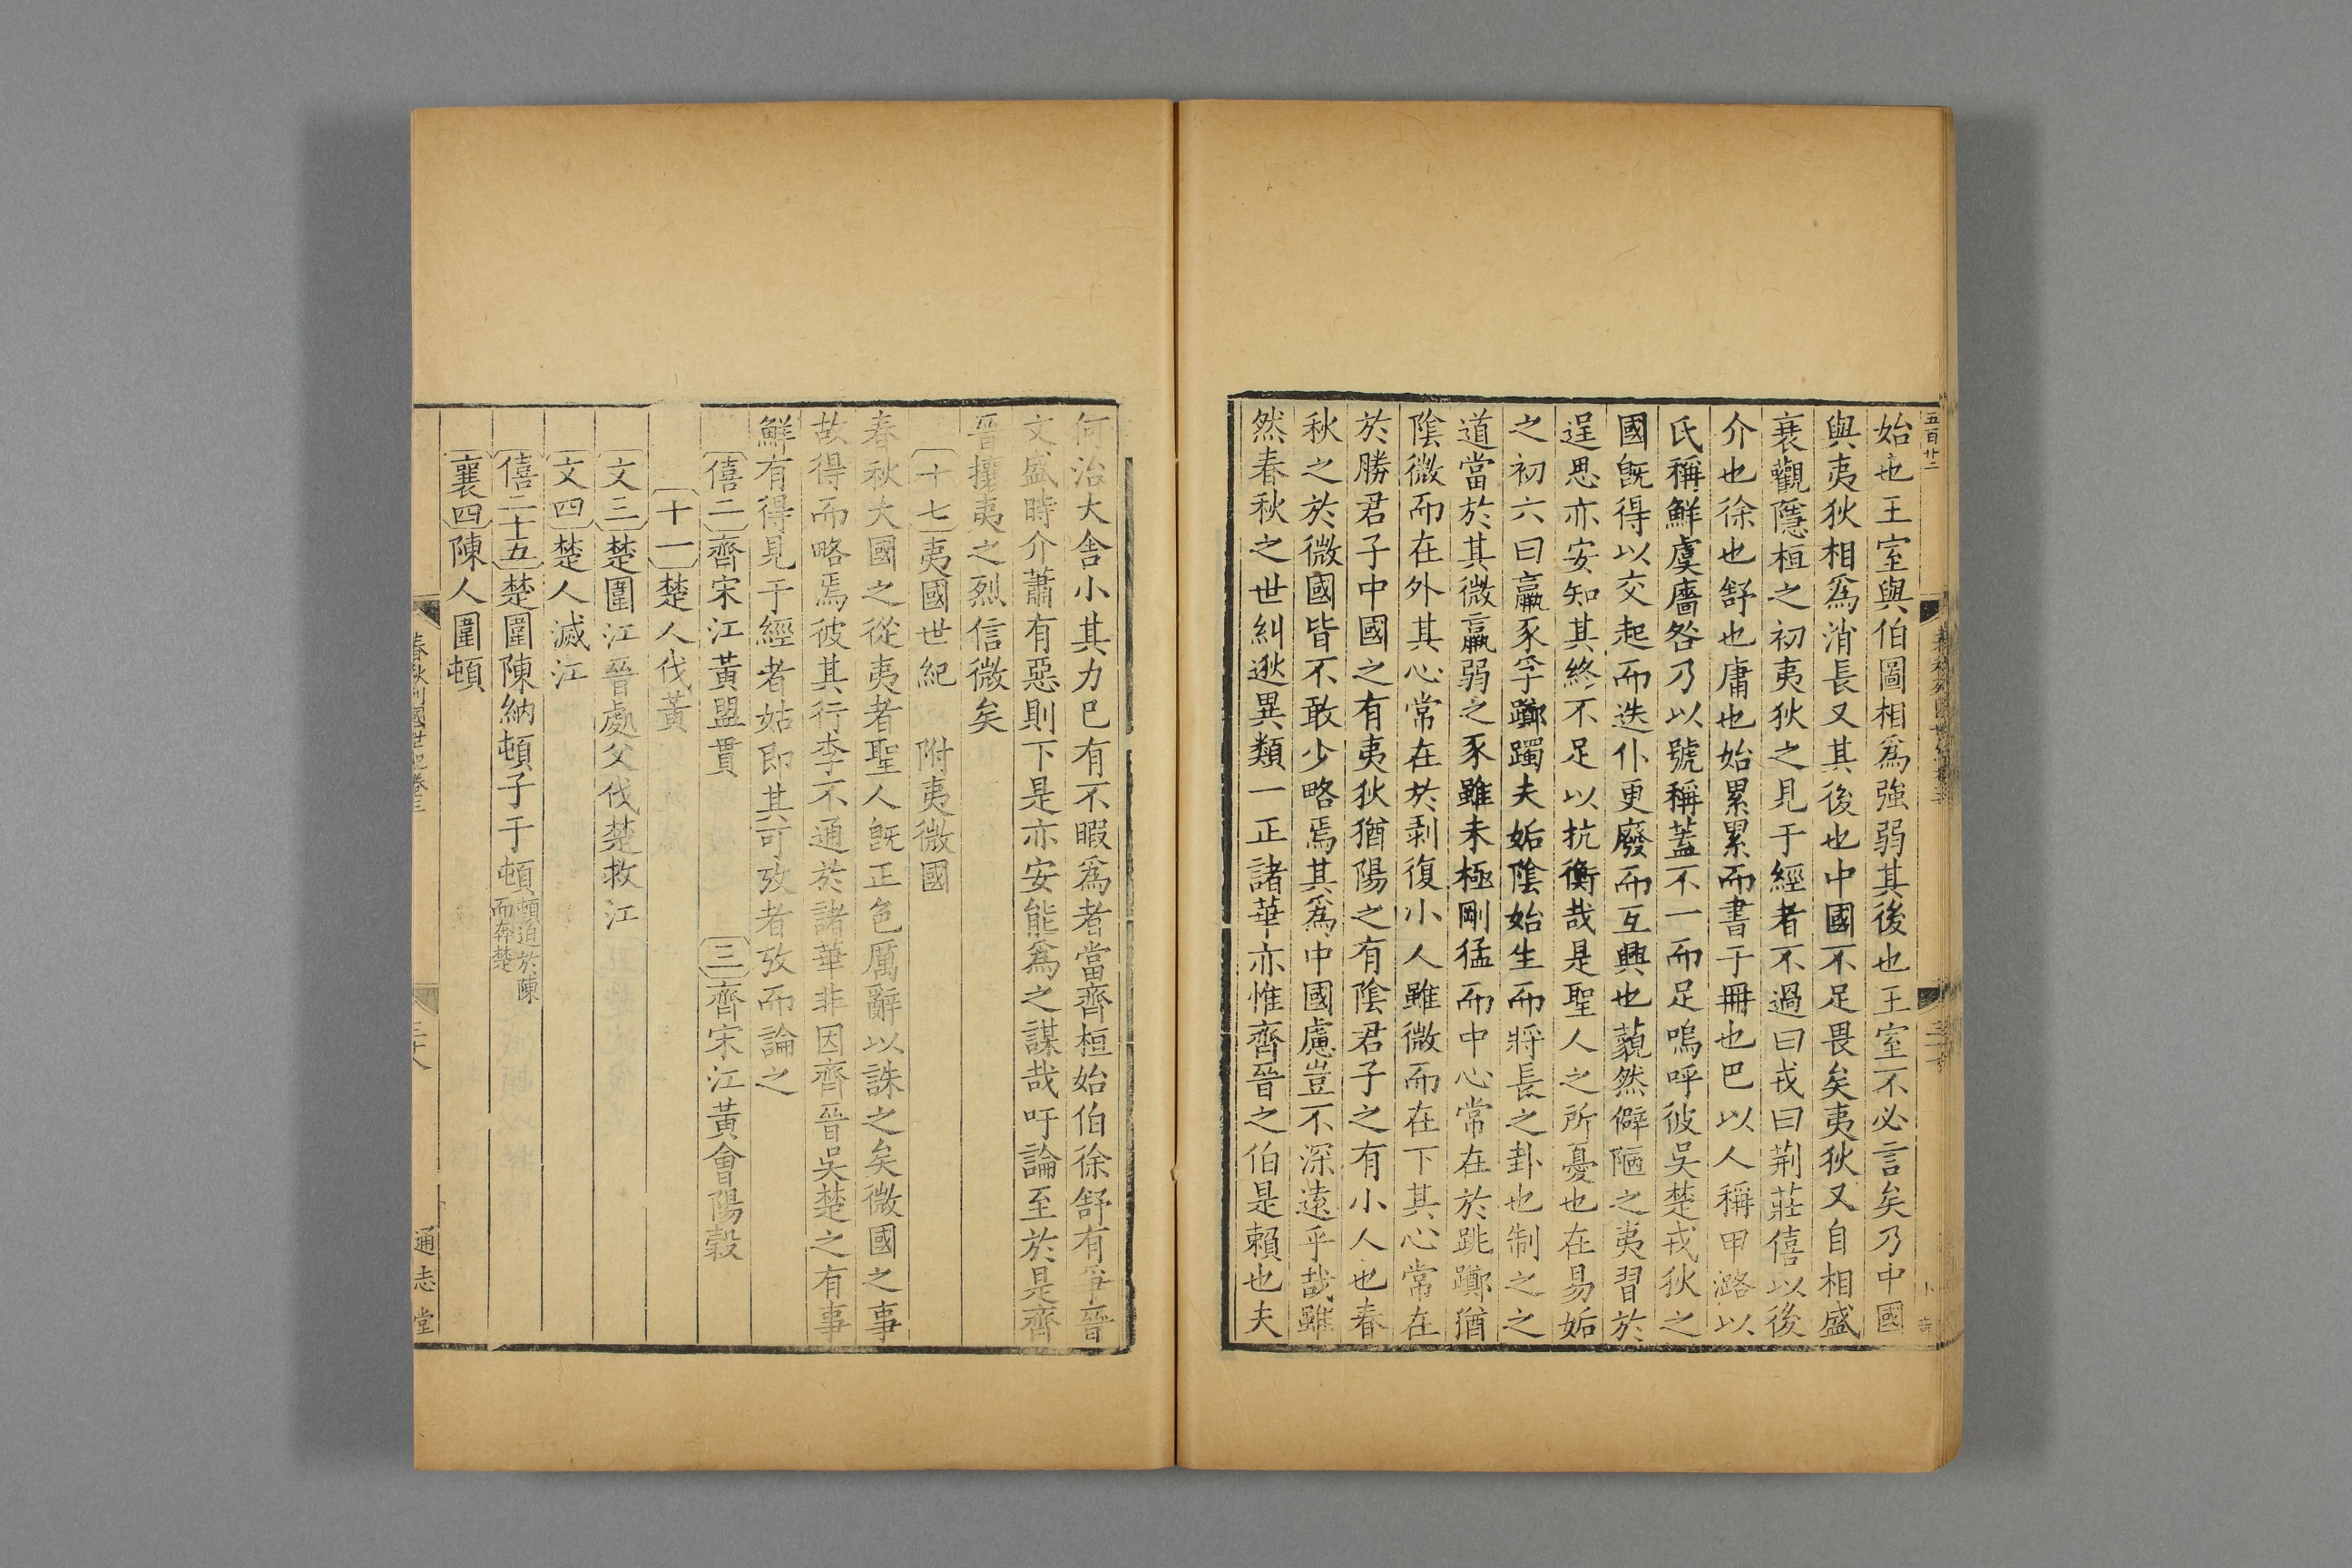 五百廿二
始也王室與伯圖相爲強弱其後也王室不必言矣乃中國
與夷狄相爲消長又其後也中國不足畏矣夷狄又自相盛
衰觀隱桓之初夷狄之見于經者不過曰戎曰荆莊僖以後
介也徐也舒也庸也始累累而書于冊也巴以人稱甲潞以
氏稱鮮虞廧咎乃以號稱蓋不一而足嗚呼彼吳楚戎狄之
國旣得以交起而迭仆更廢而互興也藐然僻陋之夷習於
逞思亦安知其終不足以抗衡哉是聖人之所憂也在易姤
之初六曰羸豕孚躑躅夫姤陰始生而將長之卦也制之之
道當於其微羸弱之豕雖未極剛猛而中心常在於跳躑猶
陰微而在外其心常在於剥復小人雖微而在下其心常在
於勝君子中國之有夷狄猶陽之有陰君子之有小人也春
秋之於微國皆不敢少略焉其爲中國慮豈不深遠乎哉雖
然春秋之世糾逖異類一正諸華亦惟齊晉之伯是賴也夫
何治大舎小其力巳有不暇爲者當齊桓始伯徐舒有爭晉
文盛時介蕭有惡則下是亦安能爲之謀哉吁論至於是齊
晉攘夷之烈信微矣
十七夷國世紀 附夷微國
春秋大國之從夷者聖人旣正色厲辭以誅之矣微國之事
故得而略焉彼其行李不通於諸華非因齊晉吳楚之有事
鮮有得見于經者姑即其可攷者攷而論之
僖二齊宋江黃盟貫 三齊宋江黃會陽穀
十一楚人伐黃
文三楚圍江晉處父伐楚救江
文四楚人滅江
僖二十五楚圍陳納頓子于頓頓迫於陳而奔楚
襄四陳人圍頓
春秋列國世紀卷三
三十八
通志堂